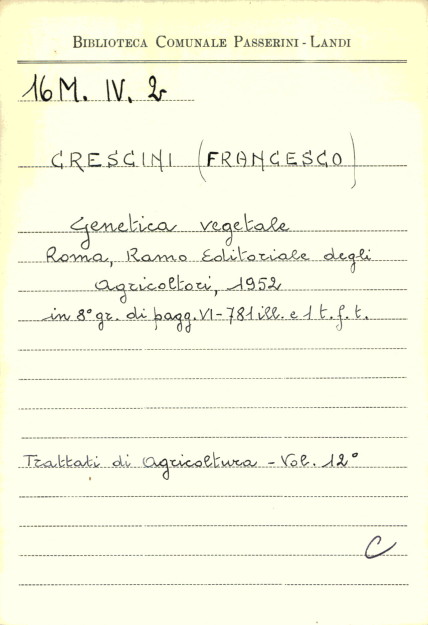 BIBLIOTECA COMUNALE PASSERINI - LANDI
16 M. IV. 2
CRESCINI (FRANCESCO)
Genetica vegetale
Roma, Ramo Editoriale degli
Agricoltori, 1952
in 8° gr. di pagg. VI - 781 ill. e 1 t. f. t.
Trattati di Agricoltura - Vol. 12°
C